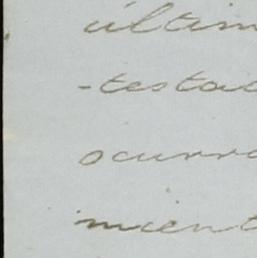 últim
-testad
ocurra
mient